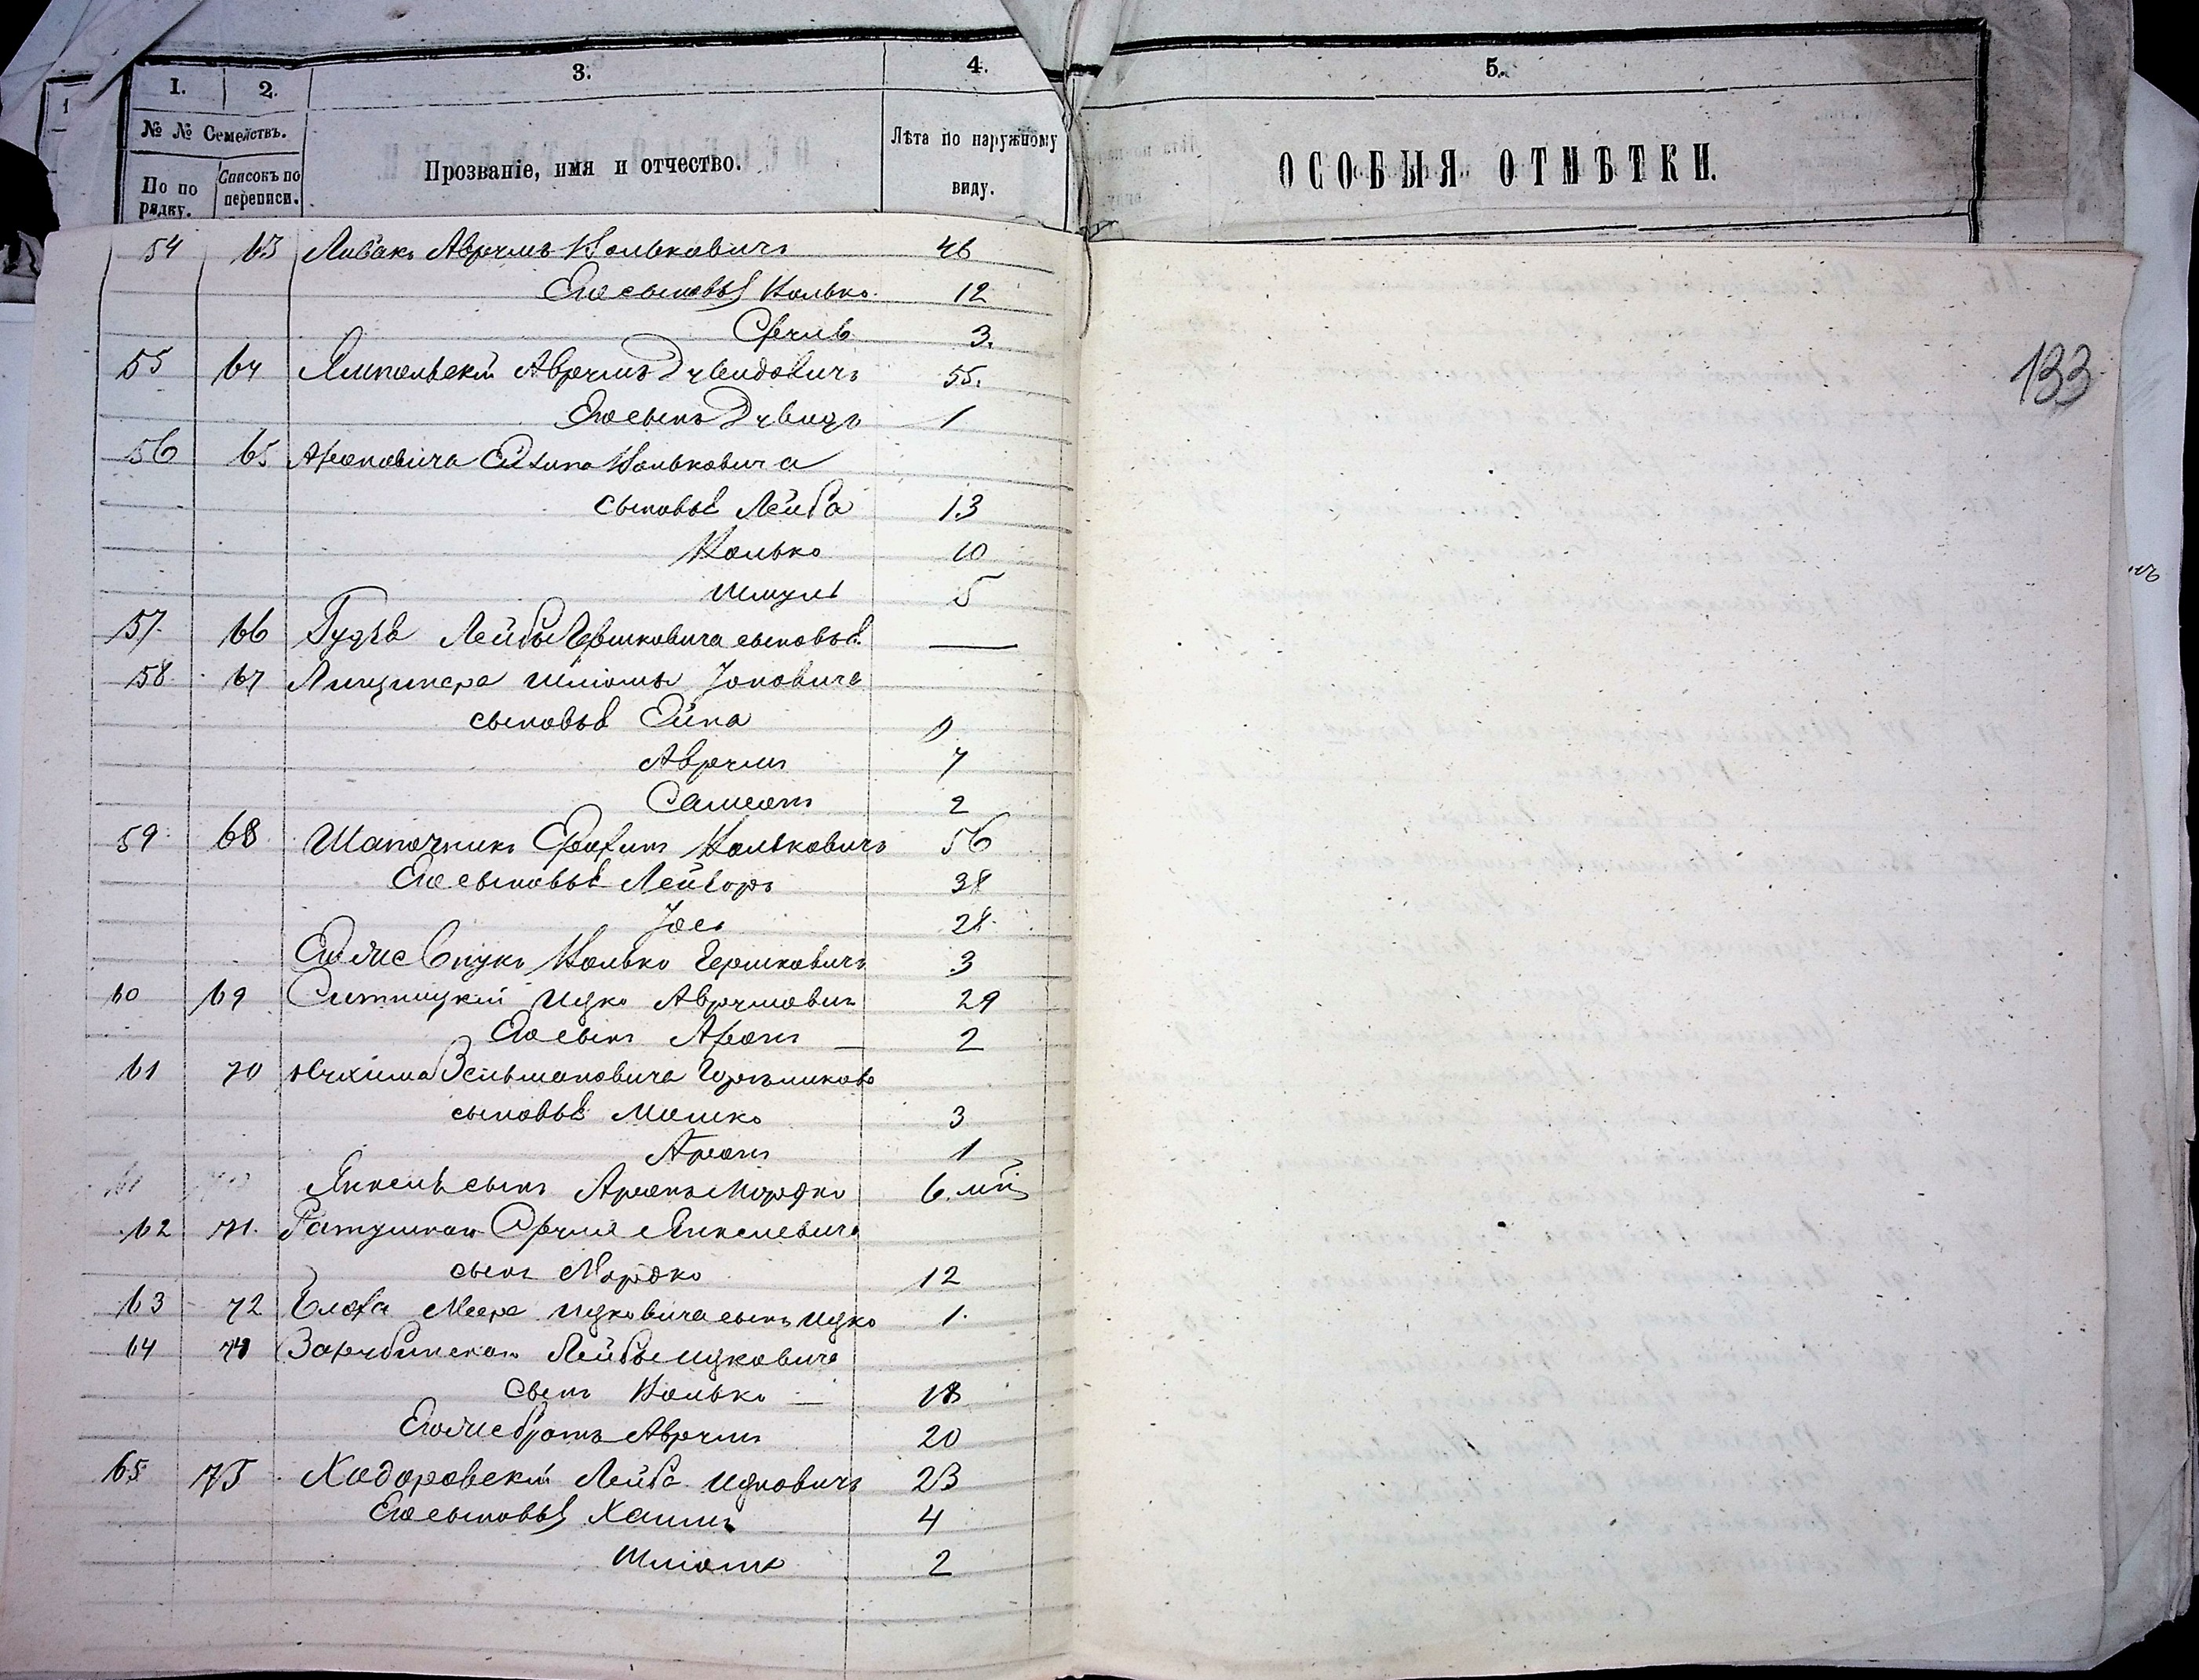 1
1.
2.
3.
4.
5.
№ № Семействъ.
По по рядку.
Списокъ по переписи.
Прозваніе, имя и отчество.
Лѣта по наружному виду.
ОСОБЫЯ ОТМѢТКИ.
133
54 63 Ливакъ Аврумъ Волькович 46
Его сыновья Волько 12
Сруль 3.
55 64 Ямпольскій Аврумъ Дувидовичъ 55.
Его сынъ Дувидъ 1
56 65 Ароновича Волковича
сыновья Лейба 13
Волько 10
Шмуль 5
57. 66 Лейбы Гершковича сыновья —
58. 67 Шліомы
сыновья
Аврумъ 7
Самсонъ 2
59. 68 Шапочникъ Срохимъ Волькович 56
Его сыновья Лейзоръ 38
Іось 28.
Его же внукъ Волько Гершковичъ 3
60 69 Ситницкій Ицко Аврумовичъ 29
Его сынъ Аронъ — 2
61 70 Зельмановича
сыновья Мошко 3
Аронъ 1
Янкель сынъ Аронъ Мордко 6.
62 71. Сруля Янкелевича
сынъ Мордко 12
63 72 Меера Ицковича сынъ Ицко 1.
64 Зарубинскаго Лейбы Ицковича
сынъ Волько — 18
Его же братъ Аврумъ 20
65 75 Ходоровскій Лейба Ицковичъ 23
Его сыновья Хаимъ 4
Шліома 2